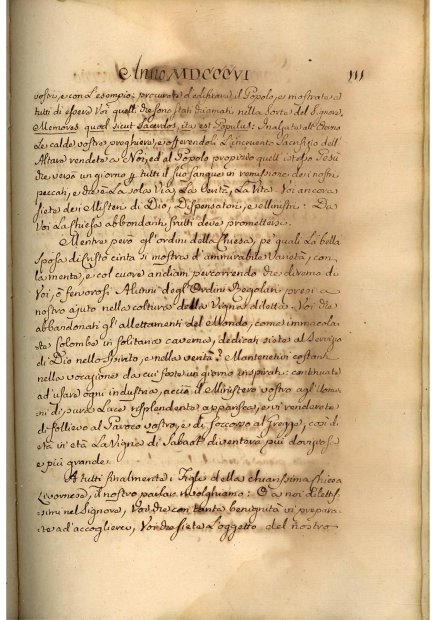 Anno MDCCCVI 111
vostri, e con L'esempio; procurate d'edificare il Popolo, e mostrate a
tutti di essere Voi quelli che sono stati chiamati nella Sorte del Signore,
Memores quod sicut Sacerdos, ita est Populus: Inalzate all'Eterno
Le calde vostre preghiere, e offerendoli L'incruento Sacrifizio dell'
Altare rendete a Noi, ed al Popolo propizio quell'istesso Gesù
che versò un giorno per tutti il suo Sangue in remissione dei nostri
peccati, e ch'è La sola Via, La Verità, La Vita. Voi ancora
siete dei Misteri di Dio, Dispensatori, e Ministri: Da
Voi La Chiesa abbondanti frutti deve promettersi.
Mentre però gl'ordini della Chiesa, pe' quali La bella
Sposa di Cristo cinta si mostra d'ammirabile Varietà, con
la mente, e col cuore andiam percorrendo che diremo di
Voi, o fervorosi Alunni degl'Ordini Regolari presi a
nostro ajuto nella coltura della Vigna diletta. Voi che
abbandonati gl'allettamenti del Mondo, come immacola
te Colombe in solitaria caverna, dedicati siete al Servizio
di Dio nello Spirito, e nella verità? Mantenetevi costanti
nella vocazione da cui foste un giorno inspirati: continuate
ad usare ogni industria, acciò il Ministero vostro agl'Uomi
ni di pura Luce risplendente apparisca, e vi renderete
di sollievo al Pastore vostro, e di soccorso al Gregge, così di
La Vigna di Sabaot diventerà più
e più grande.
A tutti finalmente i Figli della chiarissima Chiesa
Livornese, il nostro parlar rivolghiamo: O a noi diletti
simi nel Signore, Voi che con tanta benignità vi prepara
te ad accoglierci, Voi che siete L'oggetto del nostro